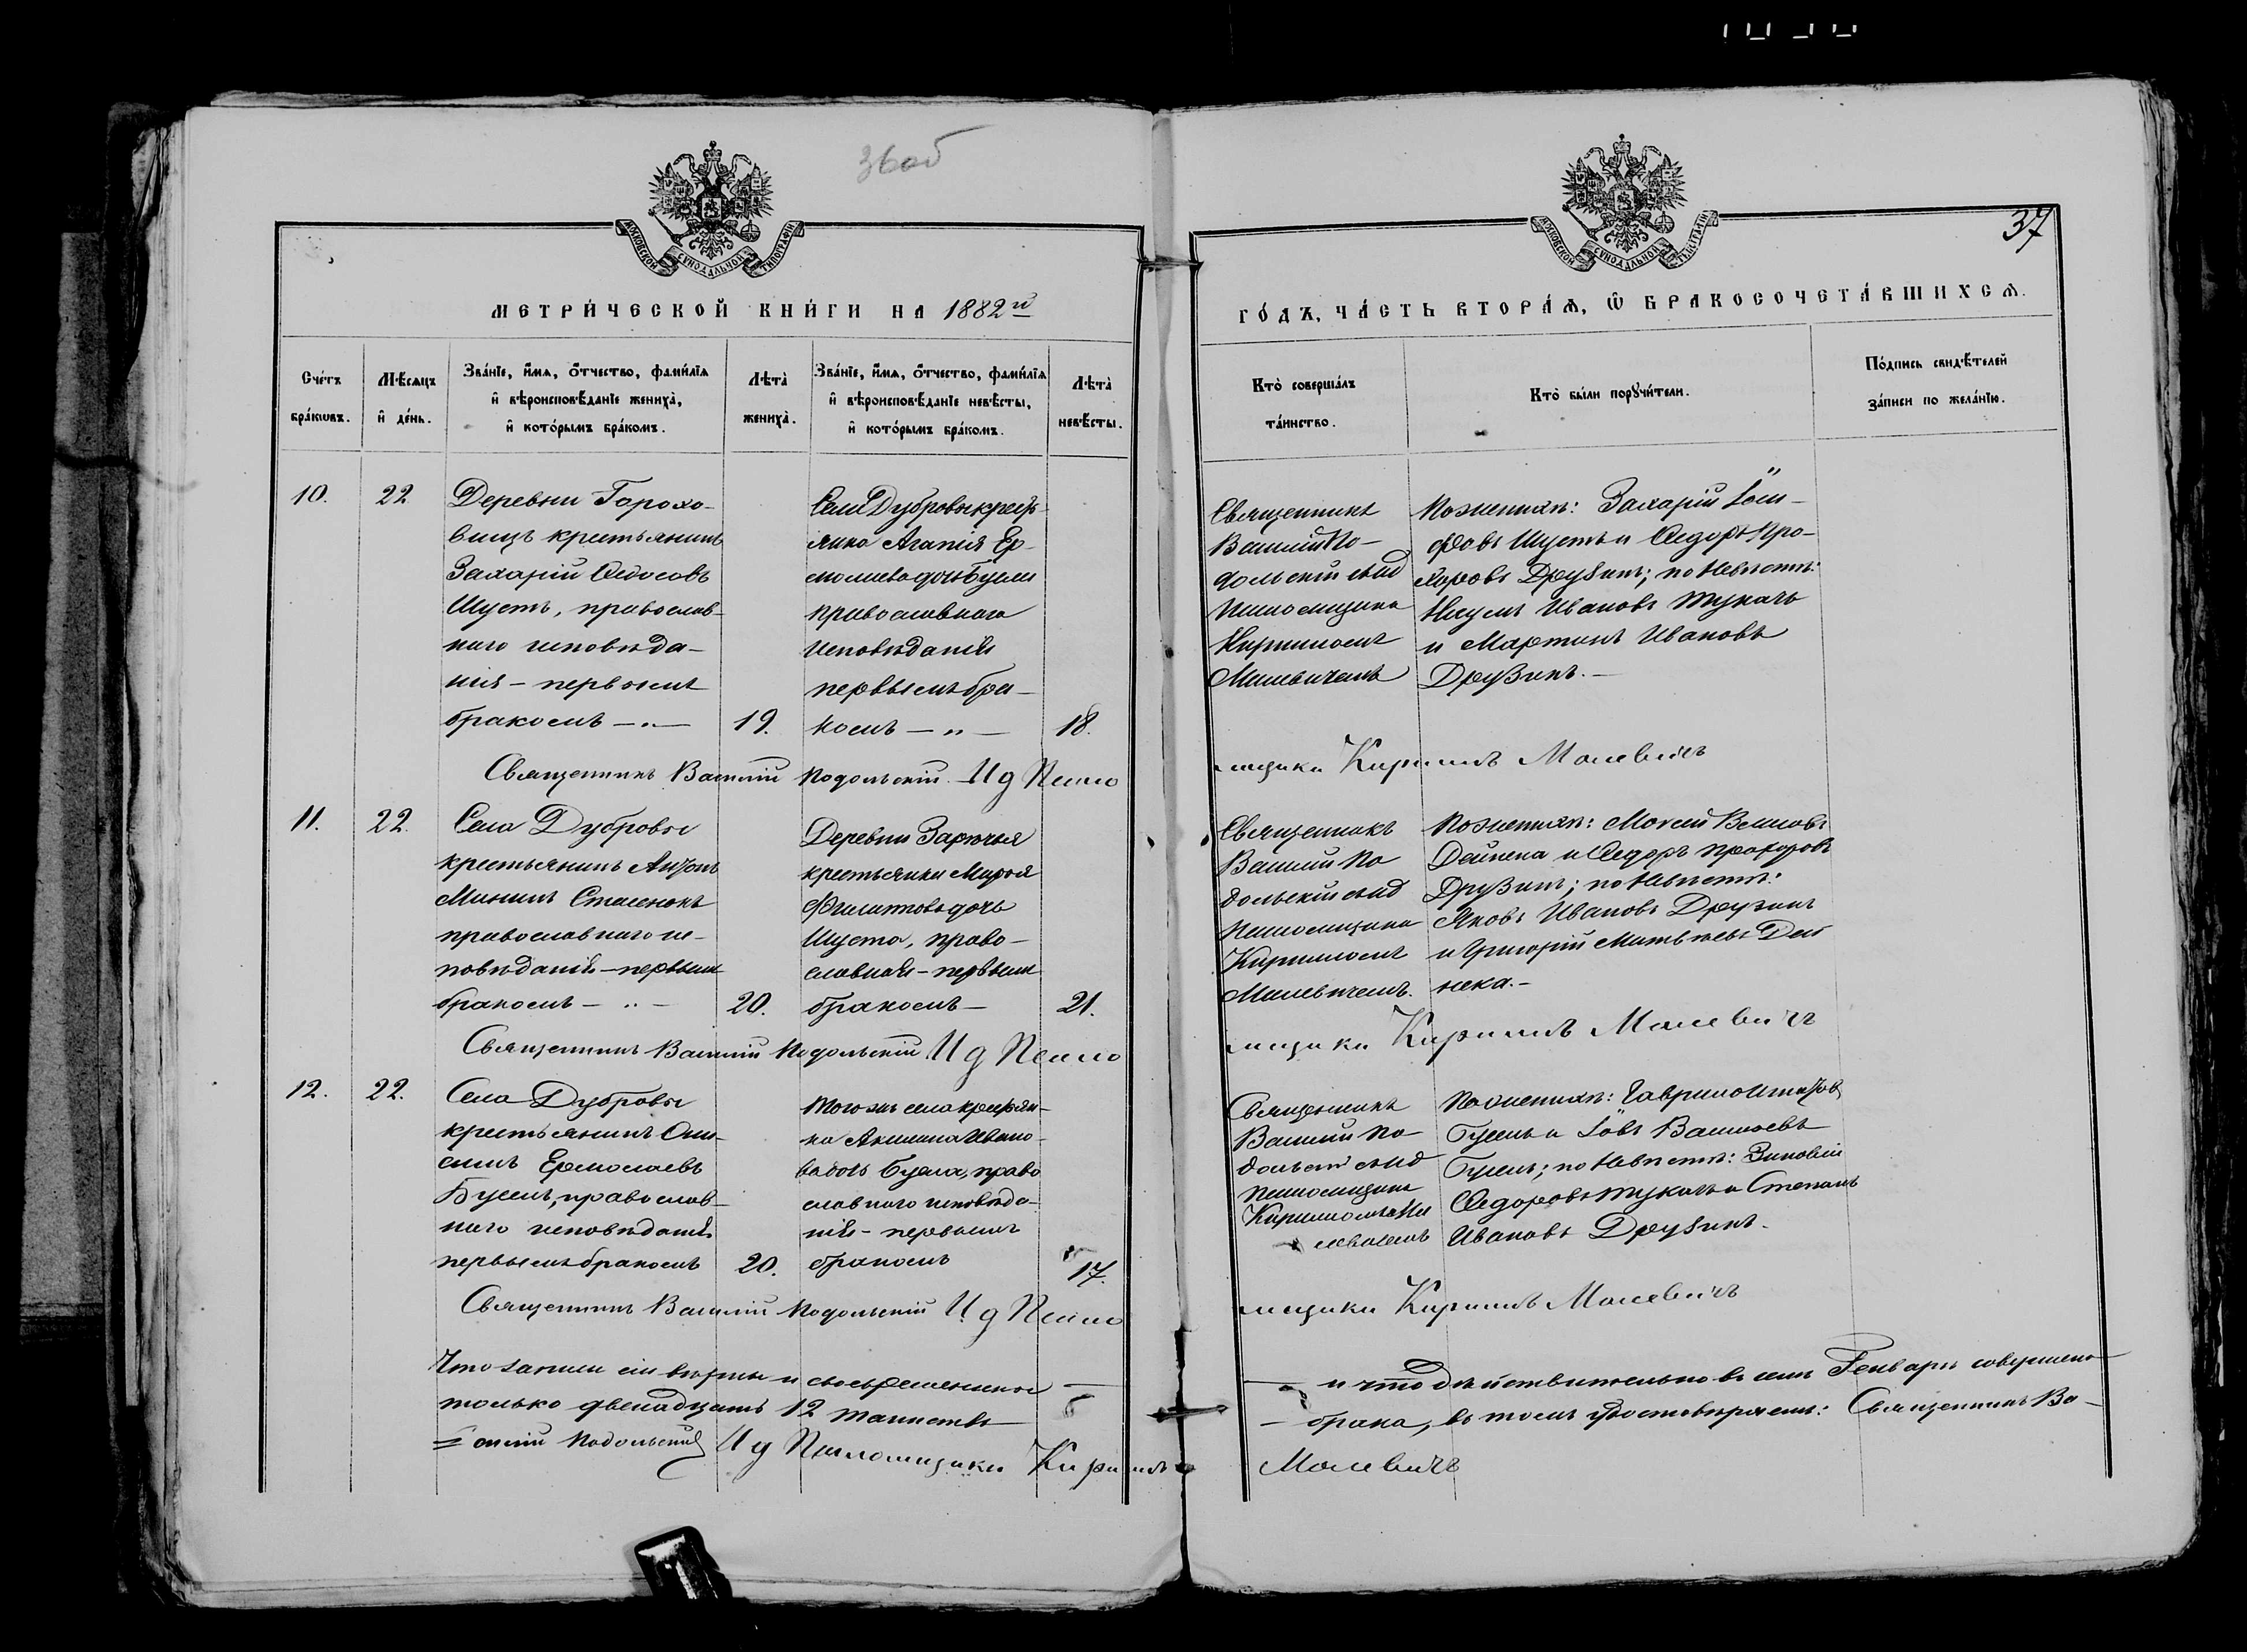 36об
37
МОСКОВСКОЙ СѴНОДАЛЬНОЙ ТИПОГРАФІИ
МОСКОВСКОЙ СѴНОДАЛЬНОЙ ТИПОГРАФІИ
МЕТРИ́ЧЕСКОЙ КНИ́ГИ НА 1882й
ГО́ДЪ, ЧА́СТЬ ВТОРА́Ѧ, Ѽ БРАКОСОЧЕТА́ВШИХСѦ.
Сче́тъ бра́кѡвъ.
Мѣ́сяцъ и҆ де́нь.
Зва́нїе, и҆́мя, ѻ҆́тчество, фами́лїя
и҆ вѣроисповѣ́данїе жениха̀,
и҆ кото́рымъ бра́комъ.
Лѣта̀ жениха̀.
Зва́нїе, и҆́мя, ѻ҆́тчество, фами́лїя
и҆ вѣроисповѣ́данїе невѣ́сты,
и҆ кото́рымъ бра́комъ.
Лѣта̀ невѣ́сты.
Кто̀ соверша́лъ
та́инство.
Кто̀ бы́ли порꙋчи́тели.
По́дпись свидѣ́телей
за́писи по жела́нїю.
10.
22
Деревни Горохо-
вищъ крестьянинъ
Захарій Ѳедосовъ
Шустъ, православ-
наго исповѣда-
нія - первымъ
бракомъ
19.
Села Дубровы крестъ-
янка Агапія Ер-
молаева дочь Бусел
православнаго
исповѣданія
первымъ бра-
комъ
18.
Священникъ
Василій По-
дольскій съ и д
псаломщика
Кирилломъ
Малевичемъ
По женихѣ: Захарій
Шустъ и Ѳедоръ Про-
хоровъ Друзикъ; по невѣстѣ:
Наумъ Ивановъ Тукачъ
и Мартинъ Ивановъ
Друзикъ.-
Священникъ Василій Подольскій И д Псало
мщика Кириллъ Малевичъ
11.
22.
Села Дубровы
крестьянинъ Антонъ
Мининъ Стасенокъ
православнаго ис-
повѣданія - первымъ
бракомъ
20.
Деревни Зарѣчья
крестьянка Марья
Филиппова дочь
Шуста, право-
славная - первымъ
бракомъ -
21.
Священникъ
Василій По
дольскій съ и д
псаломщика
Кирилломъ
Малевичемъ.
По женихѣ: Мокей
Дейнека и Ѳедоръ Прохоровъ
Друзикъ; по невѣстѣ:
Яковъ Ивановъ Друзикъ
и Григорій Матвѣевъ Дей
нека.-
Священникъ Василій Подольскій И д Псало
мщика Кириллъ Малевичъ
12.
22.
Села Дубровы
крестьянинъ Они-
симъ Ермолаевъ
Буселъ, православ-
наго исповѣданія
первымъ бракомъ
20.
Того же села крестьян-
ка Акилина Ивано-
ва дочь Бусла, право
славнаго исповѣда-
нія - первымъ
бракомъ
17.
Священникъ
Василій По-
дольскій съ и д
псаломщика
Кирилломъ Ма
левичемъ
По женихѣ: Гаврило Игнатовъ
Буселъ и Іовъ Васильевъ
Буселъ; по невѣстѣ: Зиновій
Ѳедоровъ Тукачъ и Степанъ
Ивановъ Друзикъ.
Священникъ Василій Подольскій И д Псало
мщика Кириллъ Малевичъ
Что записи сіи вѣрны и своевременны — и что дѣйствительно въ семъ Генварѣ совершено
только двенадцать 12 таинствъ — брака, въ томъ удостовѣряемъ: Священникъ Ва-
силій Подольскій И д Псаломщика Кириллъ Малевичъ